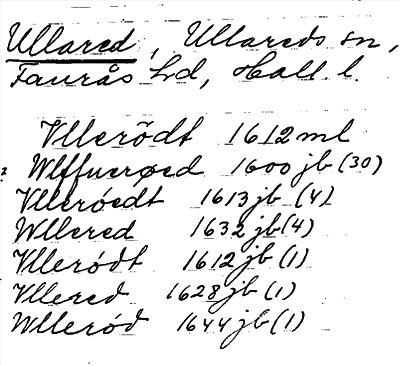 Ullared, Ullareds sn,
Faurås hd, Hall. l.
Vllerõdt 1612 ml
Wlffuerøed 1600 jb (30)
Vlleróedt 1613 jb (4)
Wllered 1632 jb (4)
Vlleródt 1612 jb (1)
Vllered 1628 jb (1)
Wlleród 1644 jb (1)